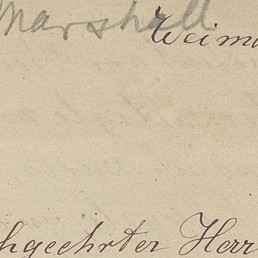 Marshall
Weima
hgeehrter Herr